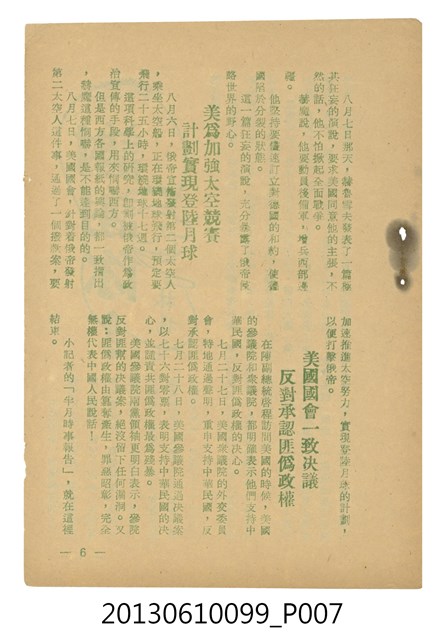 八月七日那天，赫魯雪夫發表了一篇極
其狂妄的演說，要求美國同意他的主張，不
然的話，他不怕掀起全面戰爭。
赫魔說，他要動員後備軍，增兵西部邊
疆。
他堅持要儘速訂立對德國的和約，使德
國陷於分裂的狀態。
這一篇狂妄的演說，充分暴露了俄帝侵
略世界的野心。
美爲加強太空競賽
計劃實現登陸月球
八月六日，俄帝宣佈發射第二個太空人
，乘坐太空船，正在環繞地球飛行，預定要
飛行二十五小時，環繞地球十七週。
這項科學上的研究，却被俄帝作爲政
治宣傳的手段，用來恫嚇西方。
但是西方各國報紙的輿論，都一致指出
，赫魔這種恫嚇，是不能達到目的的。
八月七日，美國國會，針對着俄帝發射
第二太空人這件事，通過了一個提案，要
加速推進太空努力，實現登陸月球的計劃，
以便打擊俄帝。
美國國會一致決議
反對承認匪僞政權
在陳副總統啓程訪問美國的時候，美國
的參議院和衆議院，都明確表示他們支持中
華民國，反對匪僞政權的決心。
七月二十七日，美國衆議院的外交委員
會，特地通過聲明，重申支持中華民國，反
對承認匪僞政權。
七月二十八日，美國參議院通過決議案
，以七十六對零票，表明支持中華民國的決
心，並譴責共匪僞政權最爲殘暴。
美國參議院兩黨領袖更明白表示，參院
反對匪幫的決議案，絕沒留下任何漏洞。又
說：匪僞政權由篡奪產生，罪惡昭彰，完全
無權代表中國人民說話！
小記者的「半月時事報告」，就在這裡
結束。
— 6 —
20130610099_P007